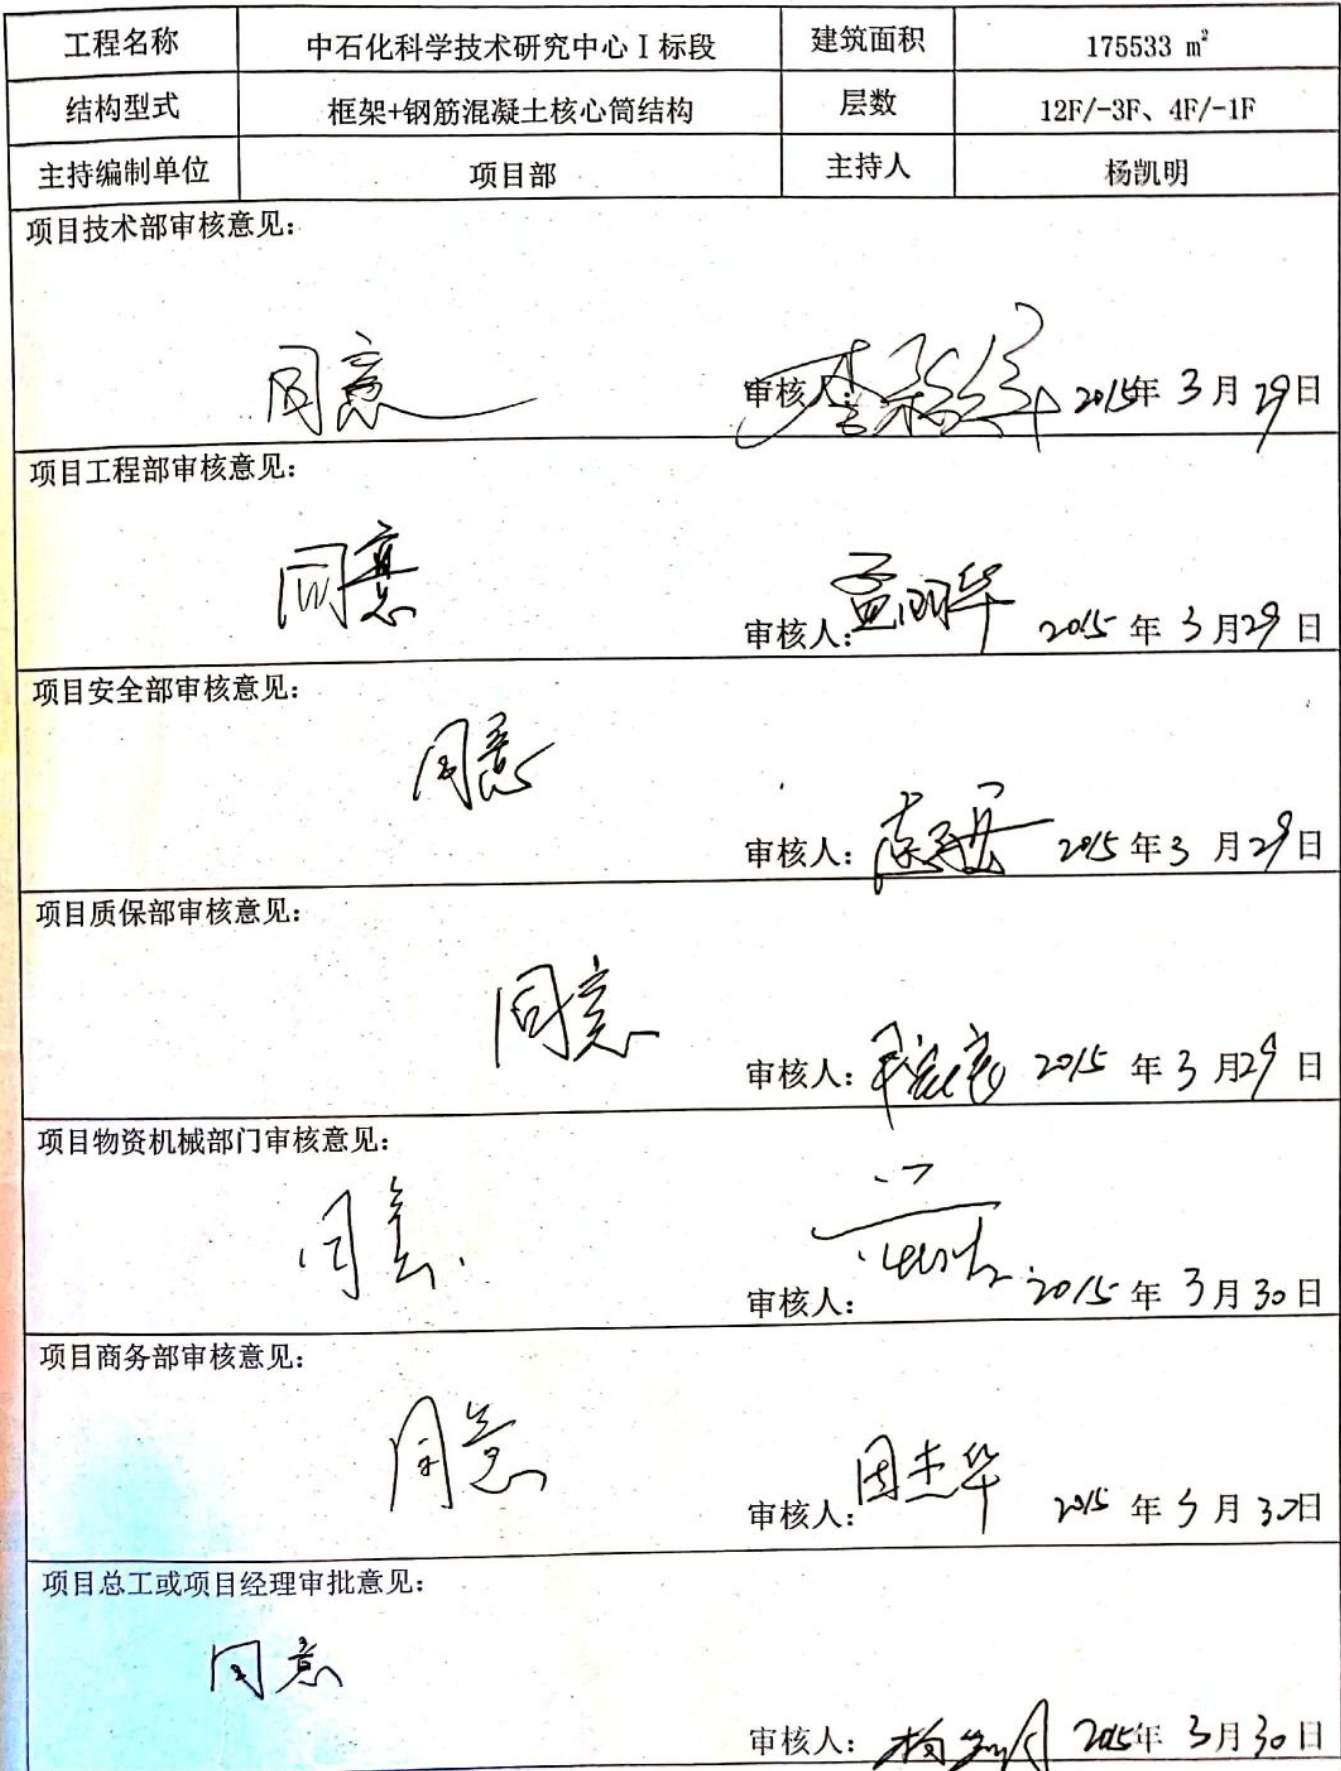 工程名称 中石化科学技术研究中心Ⅰ标段 建筑面积 175533 m²
结构型式 框架+钢筋混凝土核心筒结构 层数 12F/-3F、4F/-1F
主持编制单位 项目部 主持人 杨凯明
项目技术部审核意见:
同意
审核人: 2015年 3月 29日
项目工程部审核意见:
同意
审核人: 孟明华 2015年 3月29日
项目安全部审核意见:
同意
审核人: 2015年3月29日
项目质保部审核意见:
同意
审核人: 2015年3月29日
项目物资机械部门审核意见:
同意
审核人: 2015年3月30日
项目商务部审核意见:
同意
审核人: 周杰华 2015年3月30日
项目总工或项目经理审批意见:
同意
审核人: 杨凯明 2015年3月30日